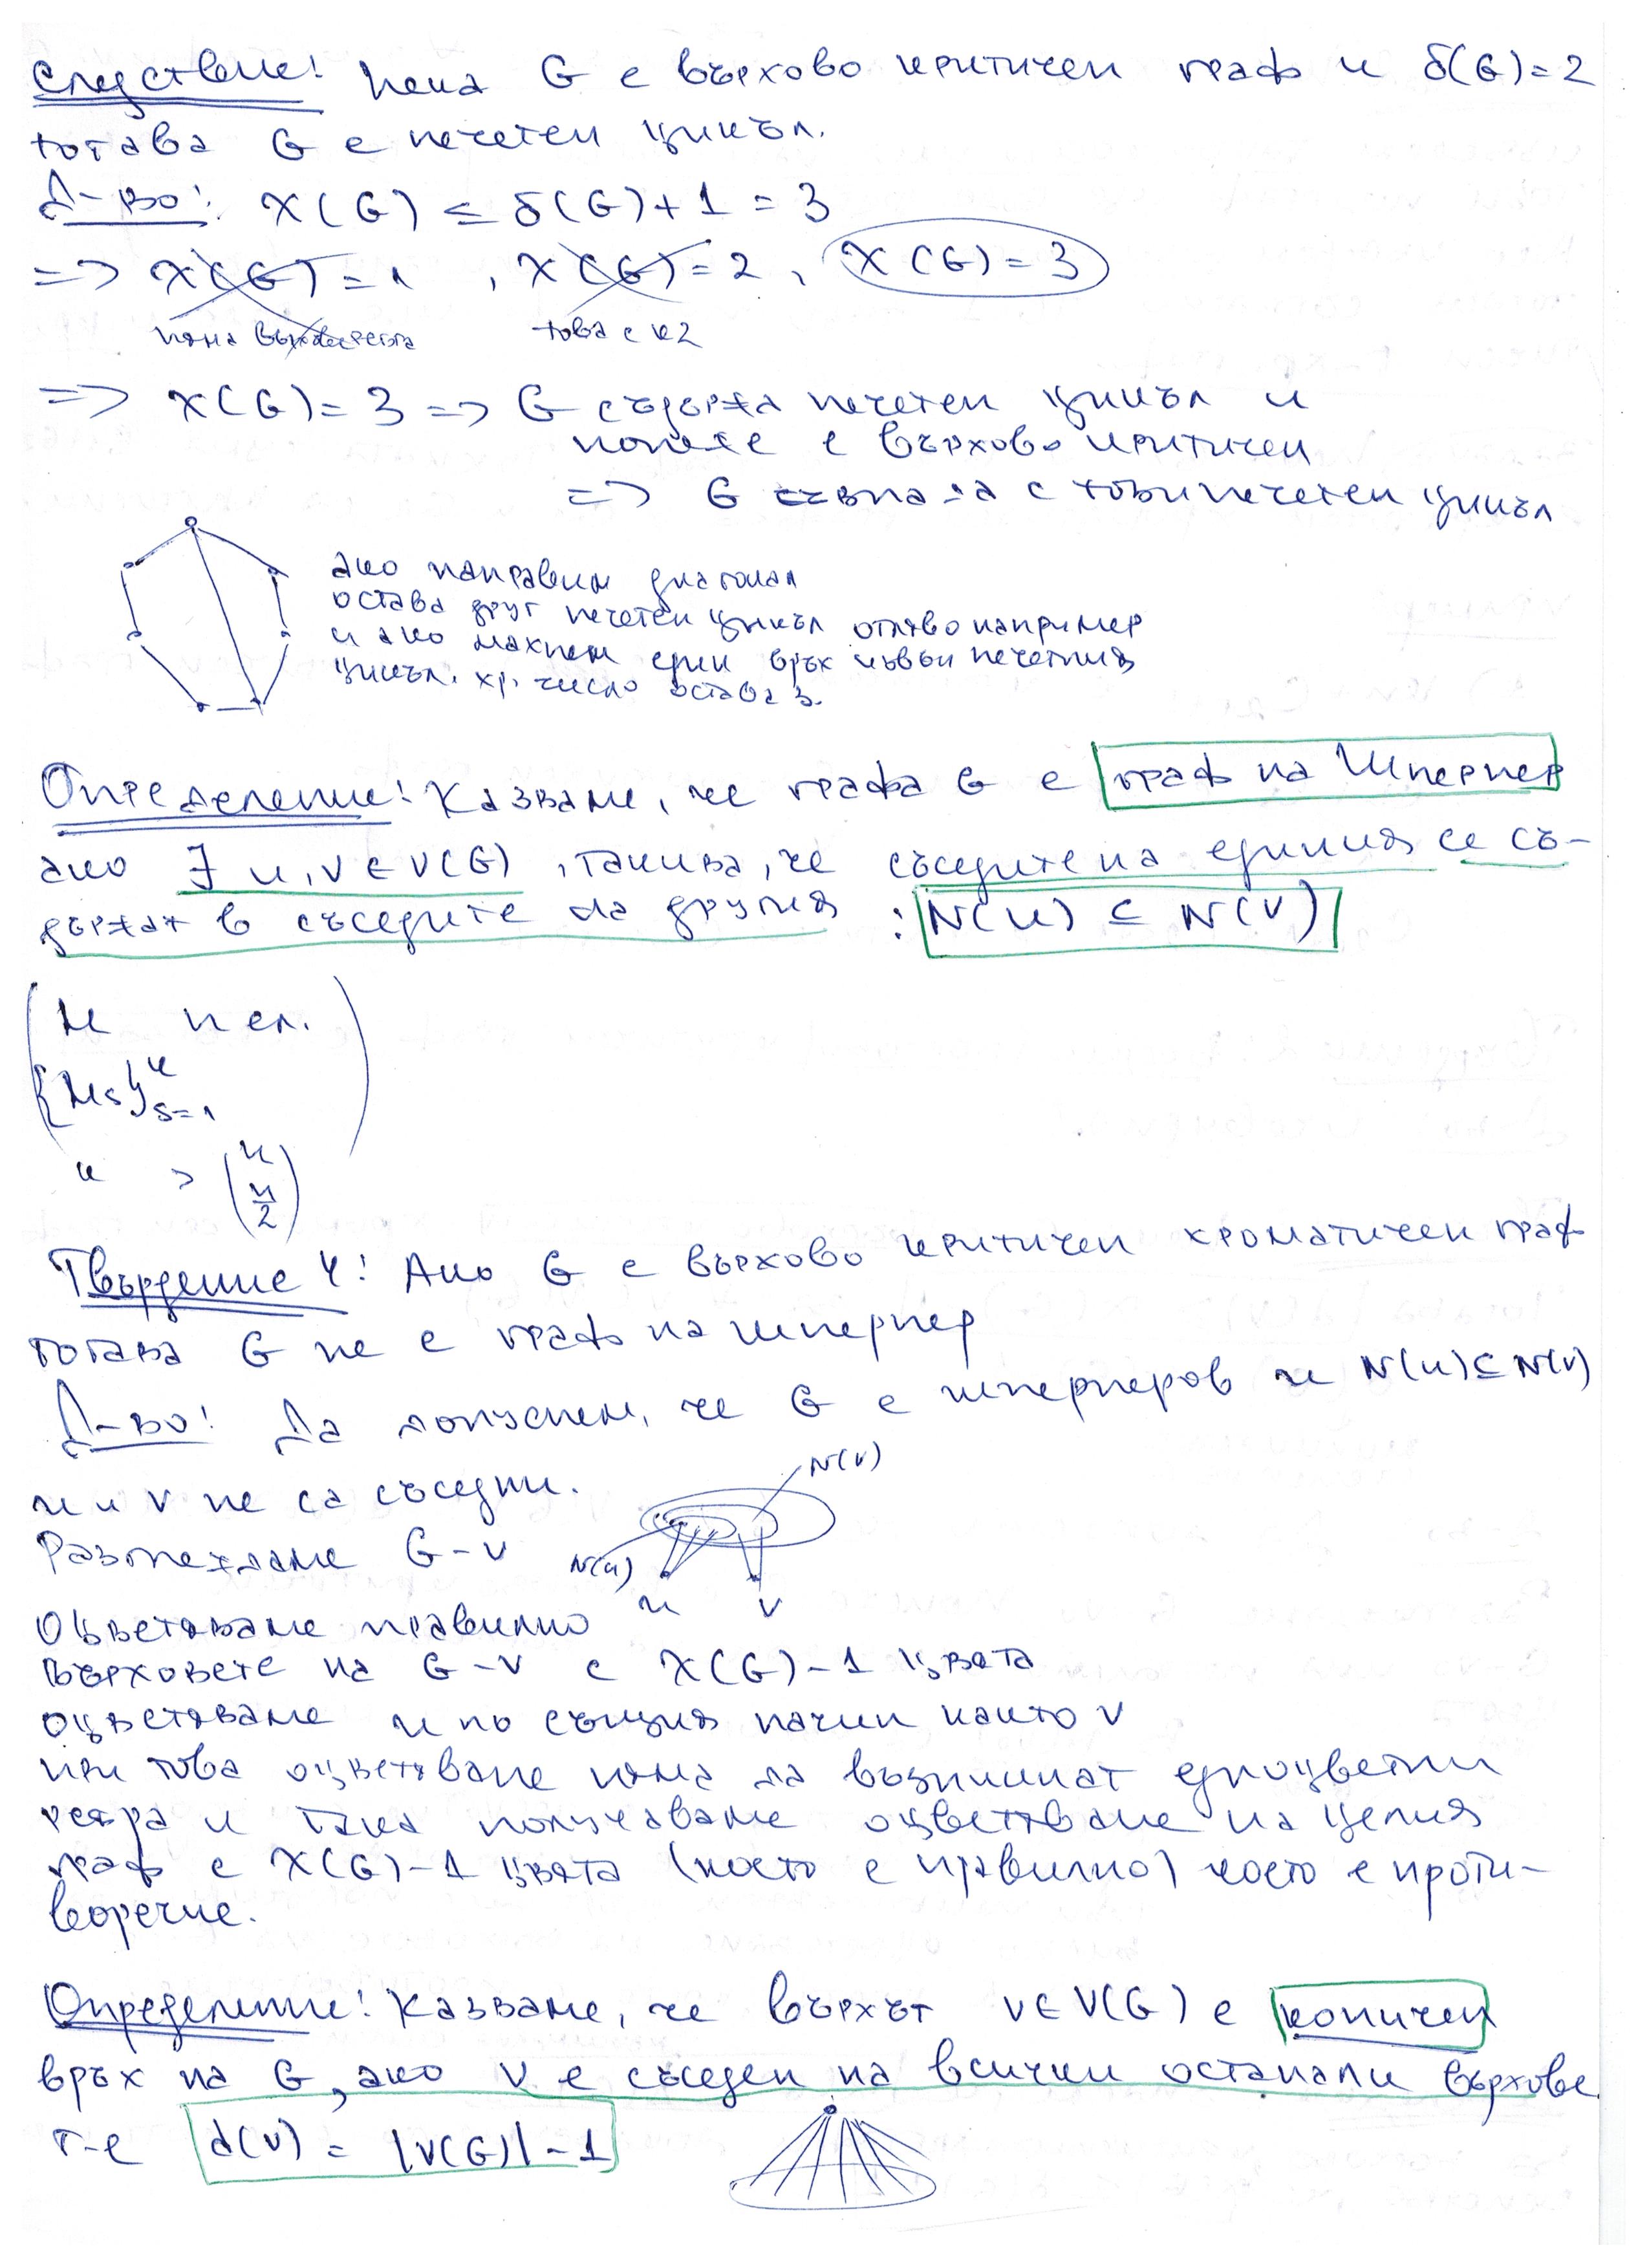 Следствие: Нека G е върхово критичен граф и δ(G)=2
тогава G е нечетен цикъл.
Д-во: χ(G) ≤ δ(G)+1 = 3
=> χ(G) = 1 , χ(G) = 2 , χ(G) = 3
няма това е K2
=> χ(G) = 3 => G съдържа нечетен цикъл и
понеже е върхово критичен
=> G съвпада с този нечетен цикъл
ако направим диагонал
остава друг нечетен цикъл отляво например
и ако махнем един връх извън нечетния
цикъл. хр. число остава 3.
Определение: Казваме, че графа G е граф на Шпернер
ако ∃ u,v ∈ V(G) , такива, че съседите на единия се съ-
държат в съседите на другия : N(u) ⊆ N(v)
M n ел.
{Ms}ᵏ s=1
k > (n n/2)
Твърдение 4: Ако G е върхово критичен хроматичен граф
тогава G не е граф на Шпернер
Д-во: Да допуснем, че G е шпернеров и N(u) ⊆ N(v)
u и v не са съседни.
N(v)
Разглеждаме G-v
N(u)
u v
Оцветяваме правилно
върховете на G-v с χ(G)-1 цвята
оцветяваме u по същия начин както v
при това оцветяване няма да възникнат едноцветни
ребра и така получаваме оцветяване на целия
граф с χ(G)-1 цвята (което е правилно) което е проти-
воречие.
Определение: Казваме, че върхът v∈V(G) е коничен
връх на G, ако v е съседен на всички останали върхове
т-е d(v) = |V(G)| - 1